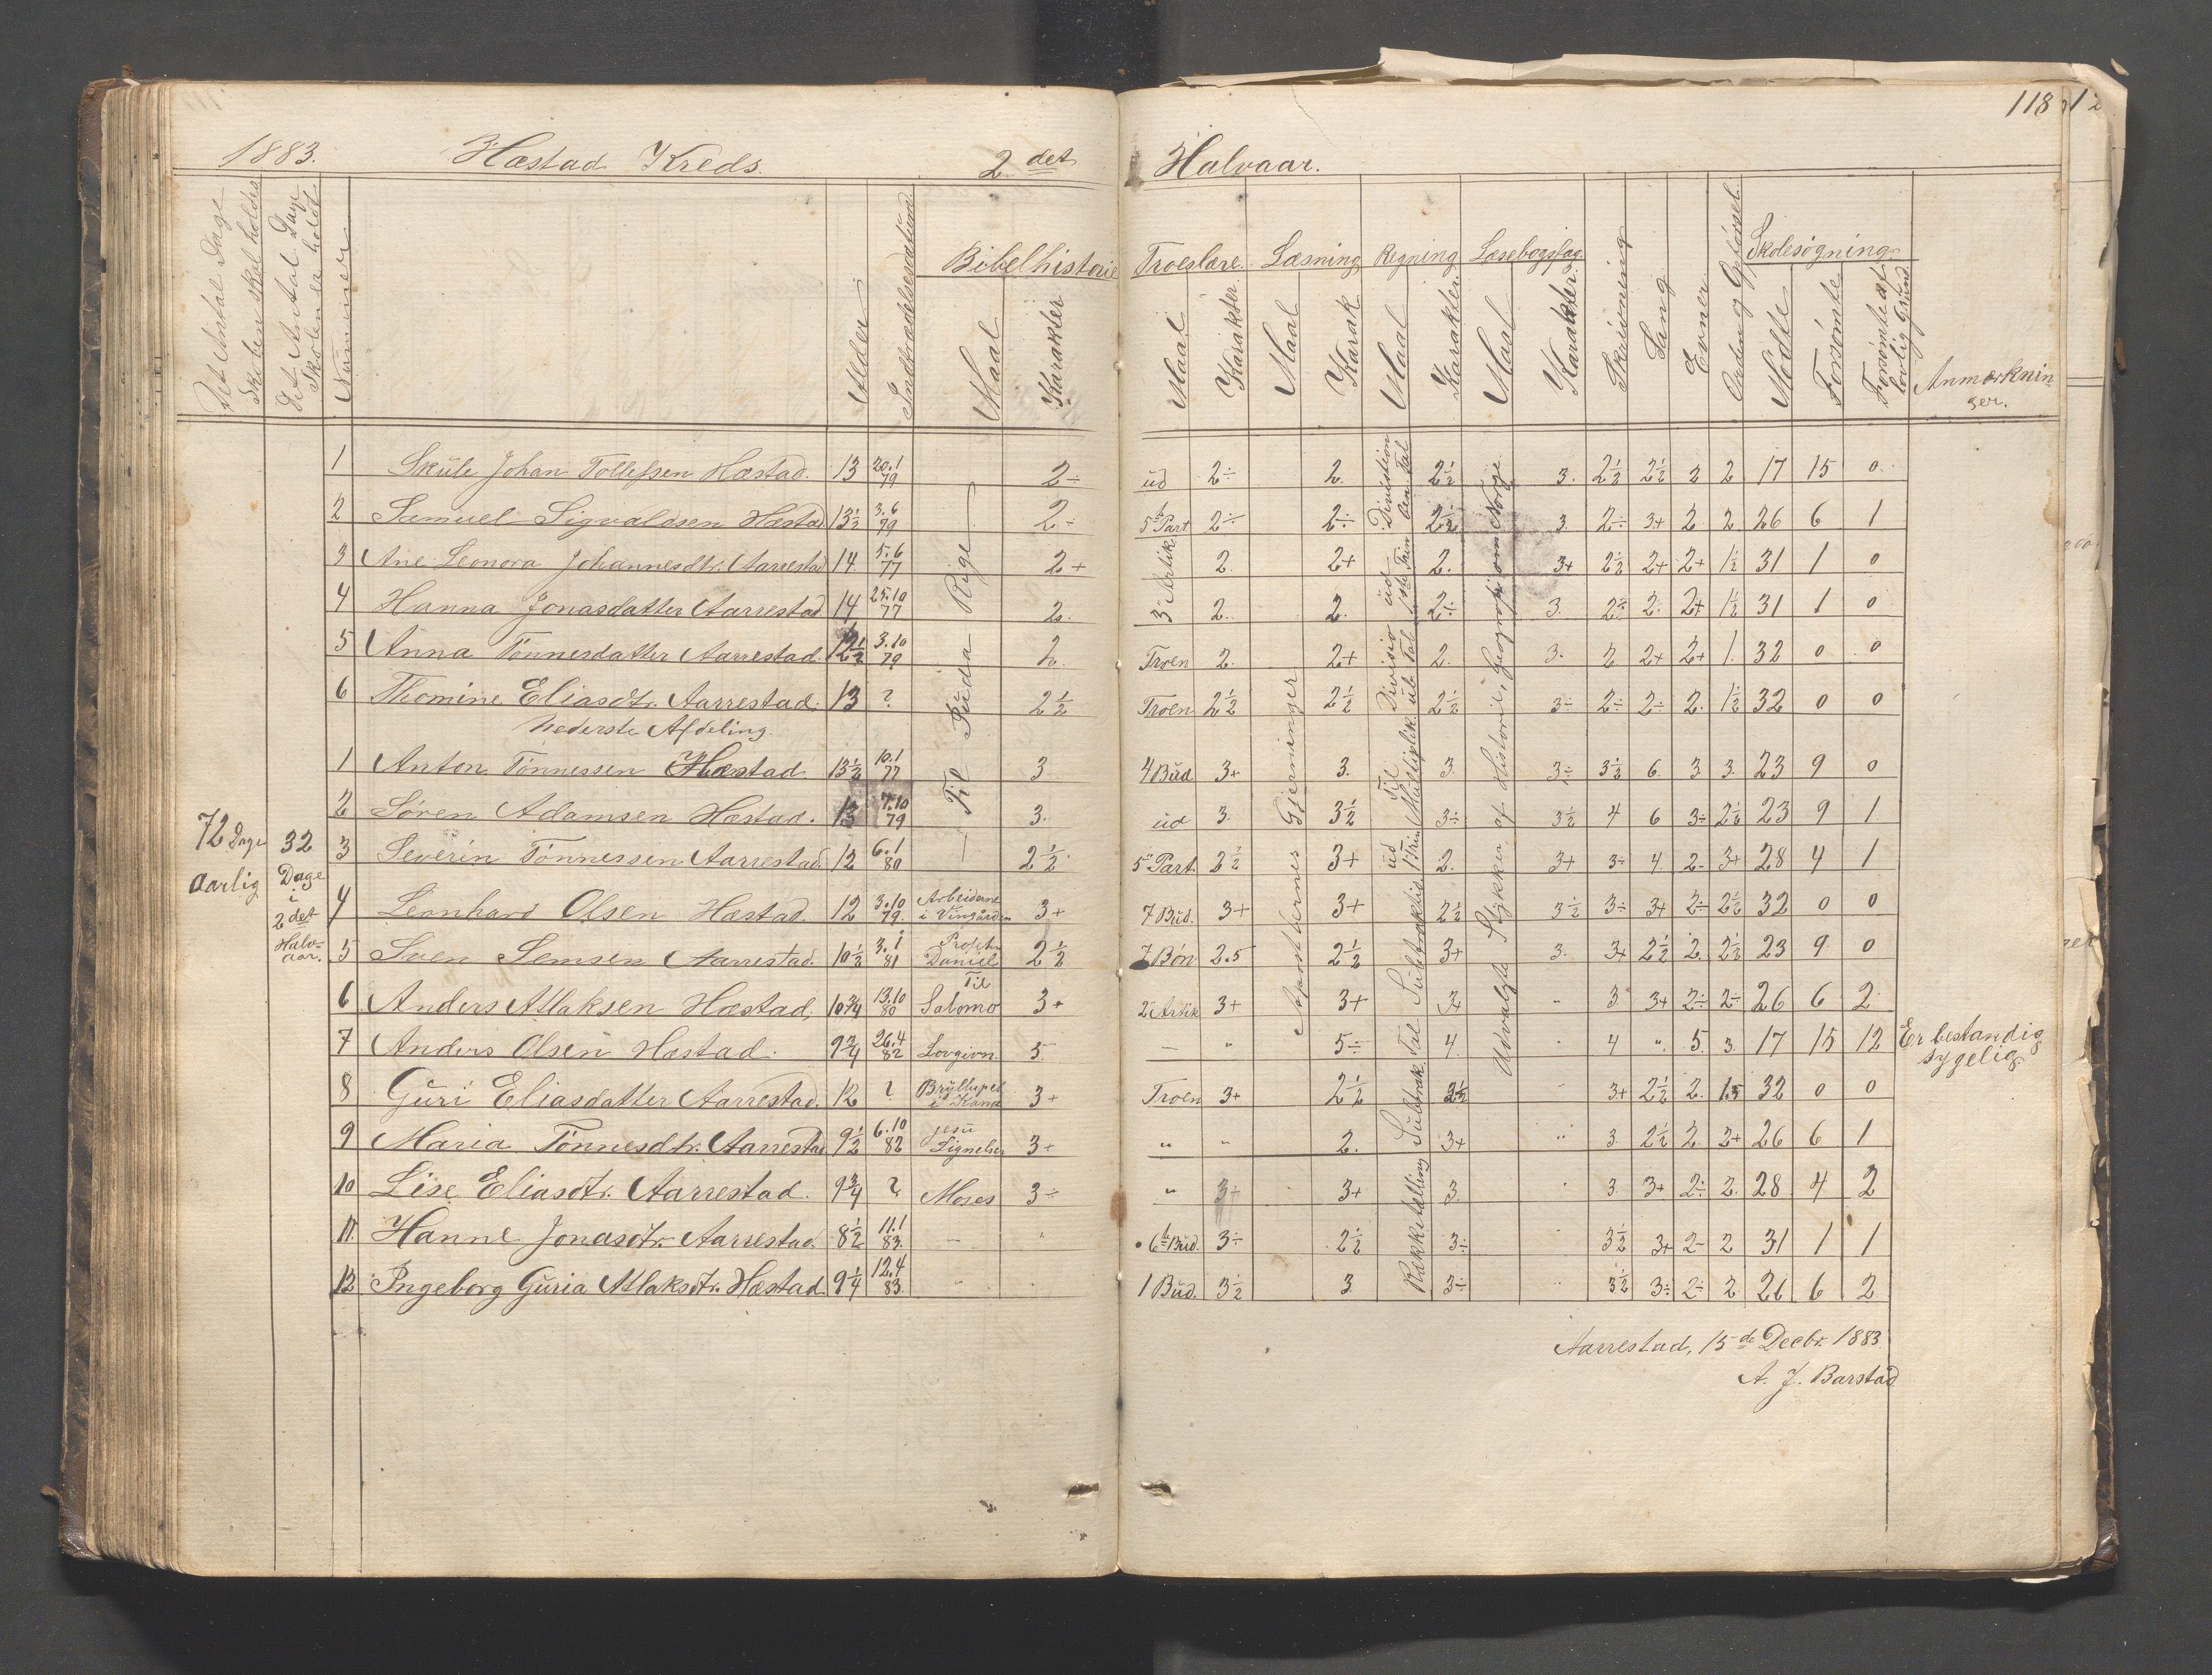 118
1883. Hæstad Kreds. 2det Halvaar.
Det Antal Dage Skolen skal holdes
Det Antal Dage Skolen er holdt
Nummer
Alder
Indtrædelsesdatum
Bibelhistorie
Maal
Karakter
Troeslære.
Maal
Karakter
Læsning
Maal
Karak
Regning
Maal
Karakter
Læsebogsfag.
Maal
Karakter
Skrivning
Sang
Evner
Orden og Opførsel
Skolesøgning.
Mødte
Forsømte
Forsømte af lovlig Grund
Anmærknin-
ger.
72 Dage
aarlig
32
Dage
i
2det
Halv-
aar.
1 Skule Johan Tollefsen Hæstad. 13 20.1 79 2÷ ud 2÷ 2. 2½ 3. 2½ 2½ 2 2 17 15 0
2 Samuel Sigvaldsen Hæstad 13½ 3.6 79 2÷ 5te Part 2÷ 2÷ 2½ 3. 2÷ 3+ 2 2 26 6 1
3 Ane Leonora Johannesdtr. Aarrestad 14 5.6 77 2+ 3die Artik 2 2+ 2. 3+ 2½ 2+ 2+ 1½ 31 1 0
4 Hanna Jonasdatter Aarrestad 14 25.10 77 2. 2. 2. 2÷ 3. 2÷ 2. 2+ 1½ 31 1 0
5 Anna Tønnesdatter Aarrestad. 12½ 3.10 79 2. Troen 2. 2+ 2. 3. 2 2+ 2+ 1. 32 0 0
6 Thomine Eliasdtr. Aarrestad. 13 ? 2½ Troen 2½ 2½ 2½ 3÷ 2÷ 2÷ 2. 1½ 32 0 0
Nederste Afdeling.
1 Anton Tønnessen Hæstad 13½ 10.1 77 3 4 Bud 3+ 3. 3. 3÷ 3½ 6 3 3. 23 9 0
2 Søren Adamsen Hæstad. 13 7.10 79 3. ud 3. 3½ 3÷ 3½ 4 6 3÷ 2½ 23 9 1
3 Severin Tønnessen Aarrestad. 12 6.1 80 2½ 5te Part. 2½ 3+ 2. 3+ 3÷ 4. 2- 3+ 28 4 1
4 Leonhard Olsen Hæstad. 12 3.10 79. Arbeiderne i Vingården 3+ 7 Bud. 3+ 3+ 2½ 3½ 3÷ 3+ 2÷ 2½ 32 0 0
5 Sven Semsen Aarrestad. 10½ 3.1 81 Profeten Daniel 2½ 7 Bøn 2.5 2½ 3+ 3. 3+ 2½ 2. 2½ 23 9 0
6 Anders Atlaksen Hæstad. 10¾ 13.10 80 Til Salomo 3+ 2 Artik 3+ 3+ 3+ " 3 3+ 2÷ 2÷ 26 6 2
7 Anders Olsen Hæstad. 9¾ 26.4 82 Lovgivn. 5 — " 5÷ 4. " 4 " 5. 3. 17 15 12 Er bestandig
sygelig
8 Guri Eliasdatter Aarrestad. 12 ? Bryllupet i Kana 3+ Troen 3+ 2½ 2½ " 3+ 2½ 2. 1.5 32 0 0
9 Maria Tønnesdtr. Aarrestad 9½ 6.10 82 Jesu Lignelser 3+ " " 2. 3+ " 3. 2½ 2. 2+ 26 6 1
10 Lise Eliasdtr. Aarrestad. 9¾ ? Moses 3÷ " 3+ 3+ 3. " 3. 3+ 2÷ 2. 28 4 2
11. Hanne Jonasdtr. Aarrestad. 8½ 11.1 83. — " 6te Bud. 3÷ 2½ 3÷ " 3½ 3+ 2- 2 31 1 1
12. Ingeborg Guria Atlaksdtr. Hæstad. 9¼ 12.4 83. " " 1 Bud. 3½ 3. 3÷ " 3½ 3÷ 2÷ 2 26 6 2
— Til Juda Rige
Apostlernes Gjerninger
Udvalgte Stykker af Historie, Geografi om Norge
Aarrestad, 15de Decbr. 1883.
A. J. Barstad